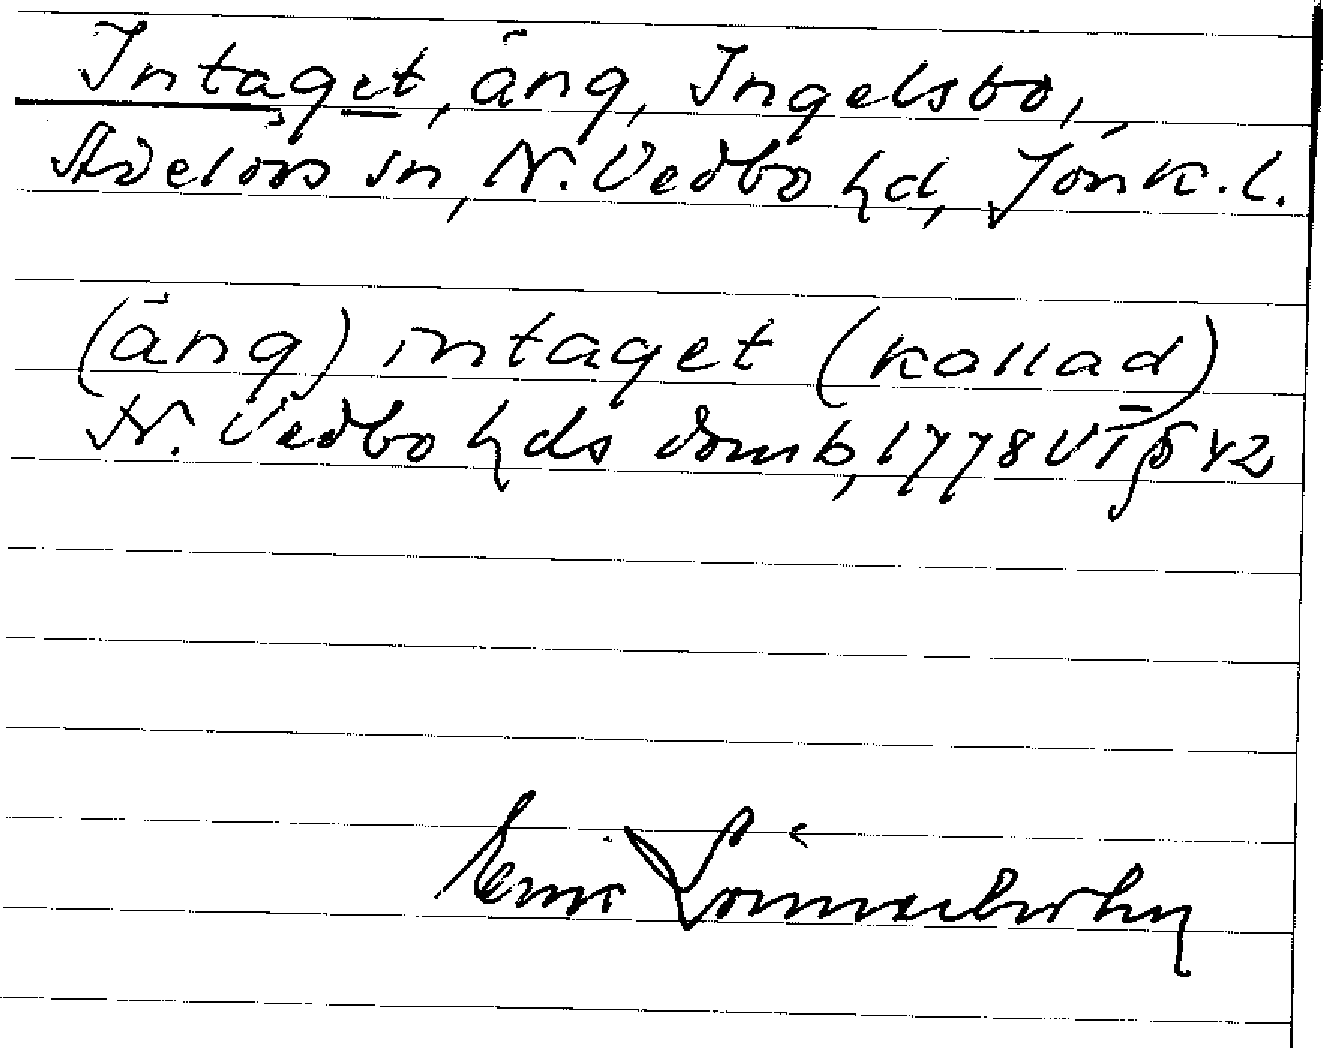 Intaget, äng, Ingelsbo,
Adelövs sn, N. Vedbo hd, Jönk. l.
(äng) intaget (kallad)
N. Vedbo hds domb, 1778 VI § 42